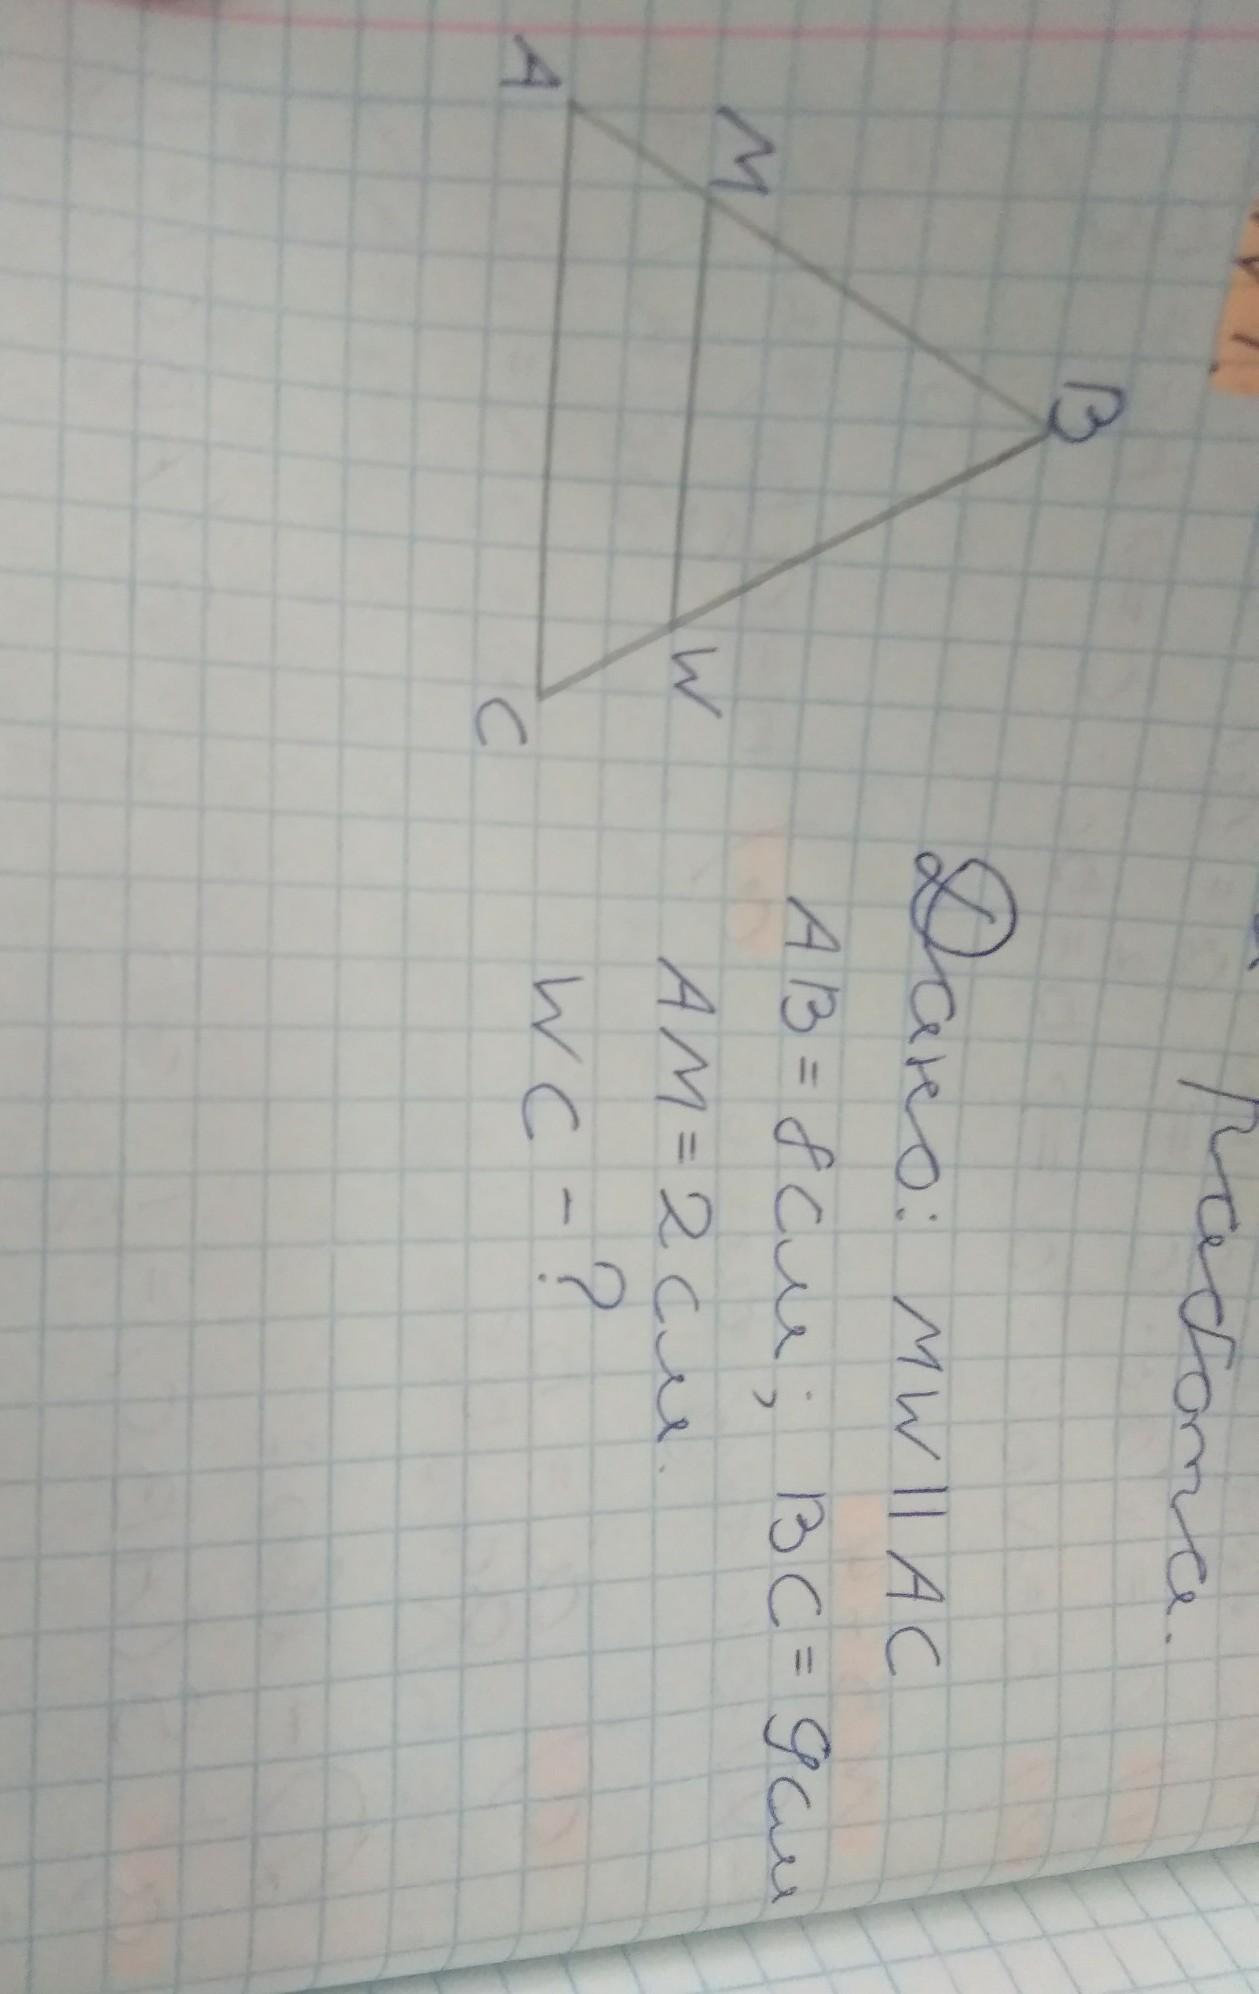 работа.
Дано: MW || AC
AB = 8 см; BC = 9 см
AM = 2 см.
WC - ?
B
M
W
A
C